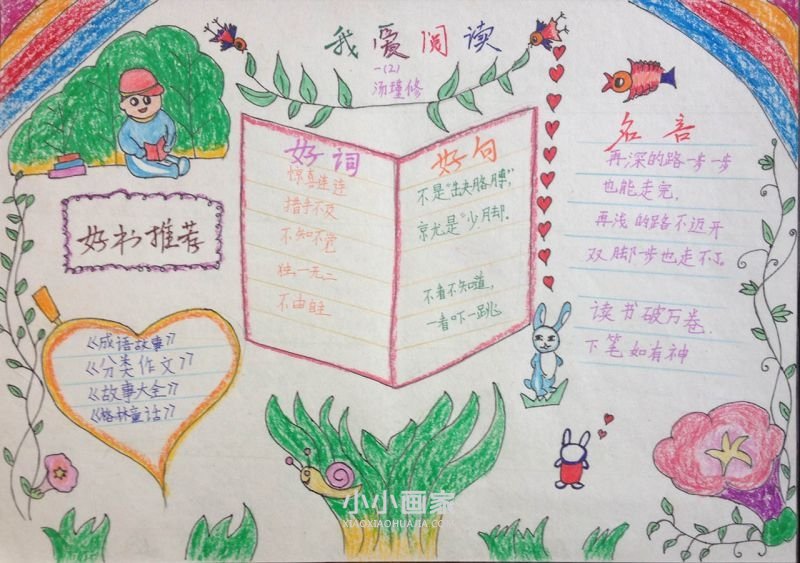 我爱阅读
一(2)
汤瑾修
好书推荐
《成语故事》
《分类作文》
《故事大全》
《格林童话》
好词
惊喜连连
措手不及
不知不觉
独一无二
不由自主
好句
不是“缺胳膊”，
就是“少脚！
不看不知道，
一看吓一跳
名言
再深的路一步一步
也能走完，
再浅的路不迈开
双脚一步也走不了。
读书破万卷，
下笔如有神
小小画家
XIAOXIAOHUAJIA.COM